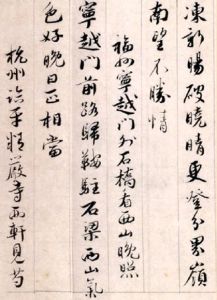 凍新陽破曉晴更登分界嶺
南望不勝情
福州寧越門外石橋看西山晚照
寧越門前路歸鞍駐石梁西山氣
色好晚日正相當
杭州臨平精嚴寺西軒見芍